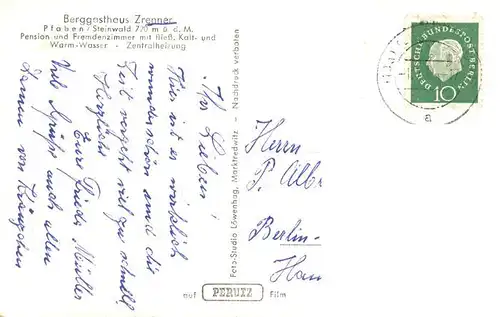 Berggasthaus Zrenner
Pfaben/Steinwald 720 m ü. d. M.
Pension und Fremdenzimmer mit fließ. Kalt- und
Warm-Wasser - Zentralheizung
Ihr Lieben!
Hier ist es wirklich
wunderschön und die
Zeit vergeht viel zu schnell.
Herzliche
Eure Frieda Müller
Viele Grüße auch allen
Damen vom Kränzchen
Foto-Studio Löwenhag, Marktredwitz - Nachdruck verboten
auf PERUTZ Film
Herrn
P. Alb
Berlin-
Han
DEUTSCHE BUNDESPOST BERLIN
10
a